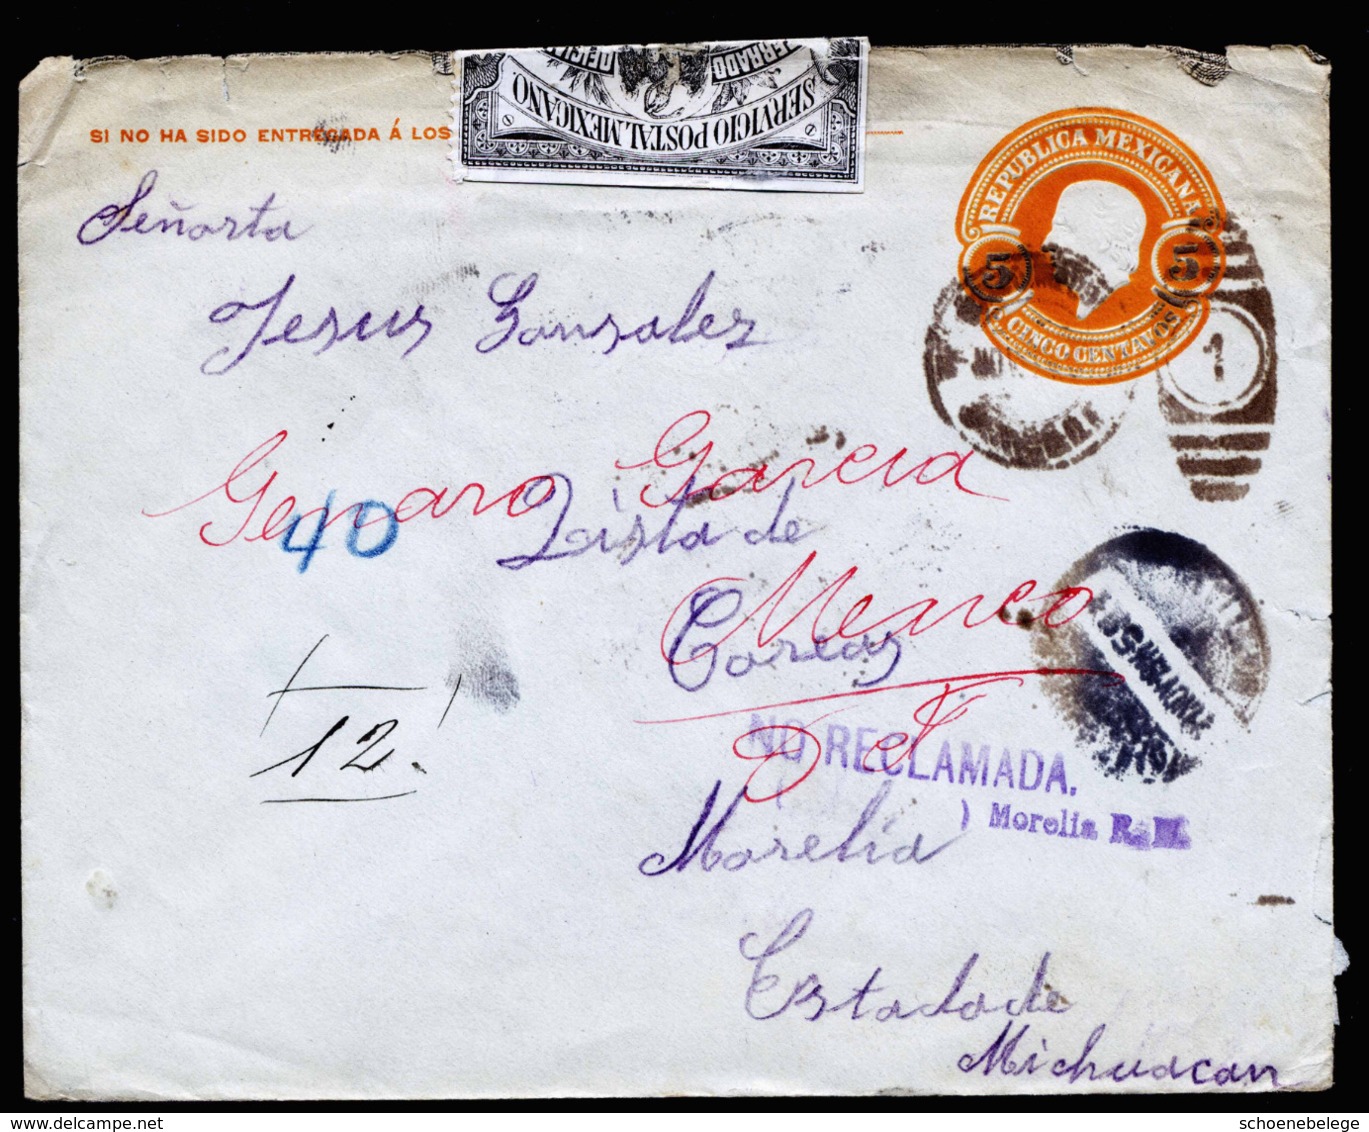 SI NO HA SIDO ENTREGADA Á LOS
SERVICIO POSTAL MEXICANO.
REPUBLICA MEXICANA
5 5
CINCO CENTAVOS
1
Señorta
Jesus Gonsales
Genaro Garcia
40
Lista de
Mexico
Coreos
D F
12.
NO RECLAMADA.
( ) Morelia R. M.
Morelia
Estado de
Michuacan
schoenebelege